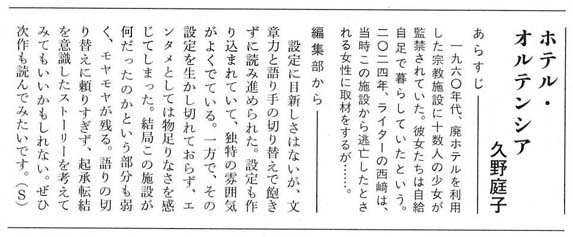 ホテル・
オルテンシア
久野庭子
あらすじ
一九六〇年代、廃ホテルを利用
した宗教施設に十数人の少女が
監禁されていた。彼女たちは自給
自足で暮らしていたという。
二〇二四年、ライターの西﨑は、
当時この施設から逃亡したとさ
れる女性に取材をするが……。
編集部から
設定に目新しさはないが、文
章力と語り手の切り替えで飽き
ずに読み進められた。設定も作
り込まれていて、独特の雰囲気
がよくでている。一方で、その
設定を生かし切れておらず、エ
ンタメとしては物足りなさを感
じてしまった。結局この施設が
何だったのかという部分も弱
く、モヤモヤが残る。語りの切
り替えに頼りすぎず、起承転結
を意識したストーリーを考えて
みてもいいかもしれない。ぜひ
次作も読んでみたいです。（S）